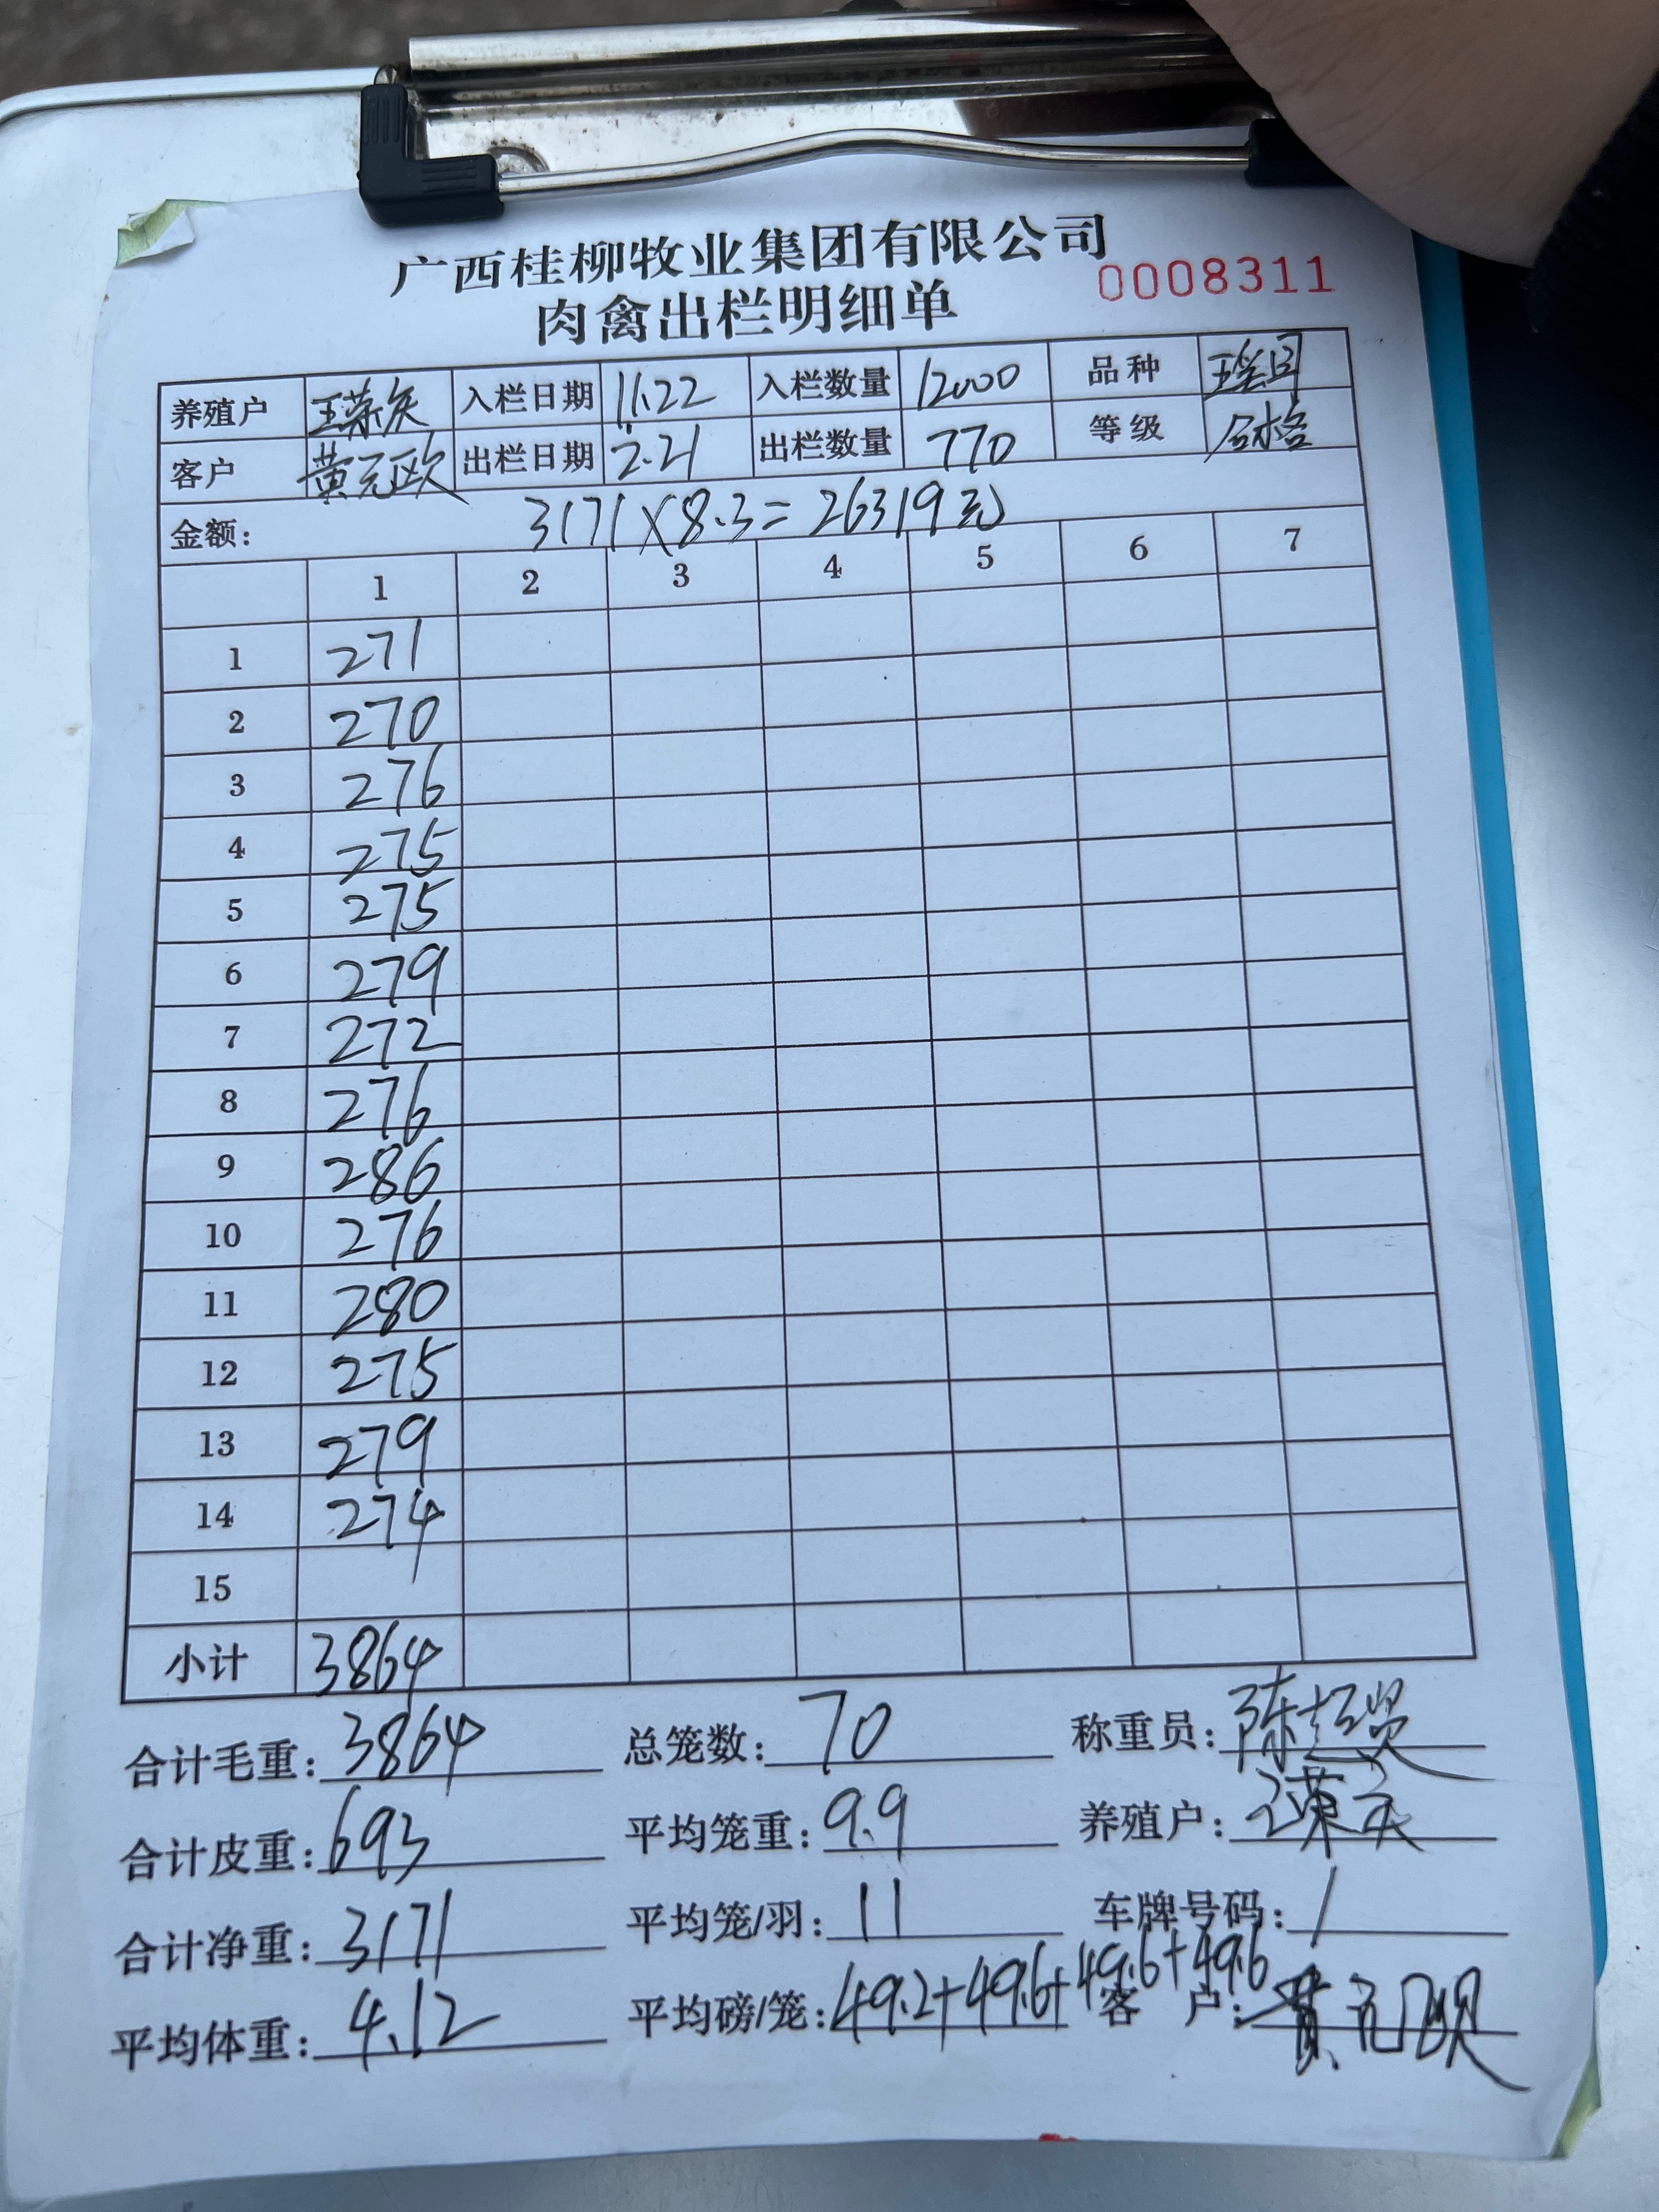 广西桂柳牧业集团有限公司
肉禽出栏明细单 0008311
养殖户 王荣 入栏日期 11.22 入栏数量 12000 品种
客户 黄元欧 出栏日期 2.21 出栏数量 770 等级 合格
金额: 3171×8.3=26319元
1 2 3 4 5 6 7
1 271
2 270
3 276
4 275
5 275
6 279
7 272
8 276
9 286
10 276
11 280
12 275
13 279
14 274
15
小计 3864
合计毛重: 3864 总笼数: 70 称重员: 陈超贤
合计皮重: 693 平均笼重: 9.9 养殖户:
合计净重: 3171 平均笼/羽: 11 车牌号码: /
平均体重: 4.12 平均磅/笼: 49.2+49.6+49.6+49.6 客户: 黄元欧